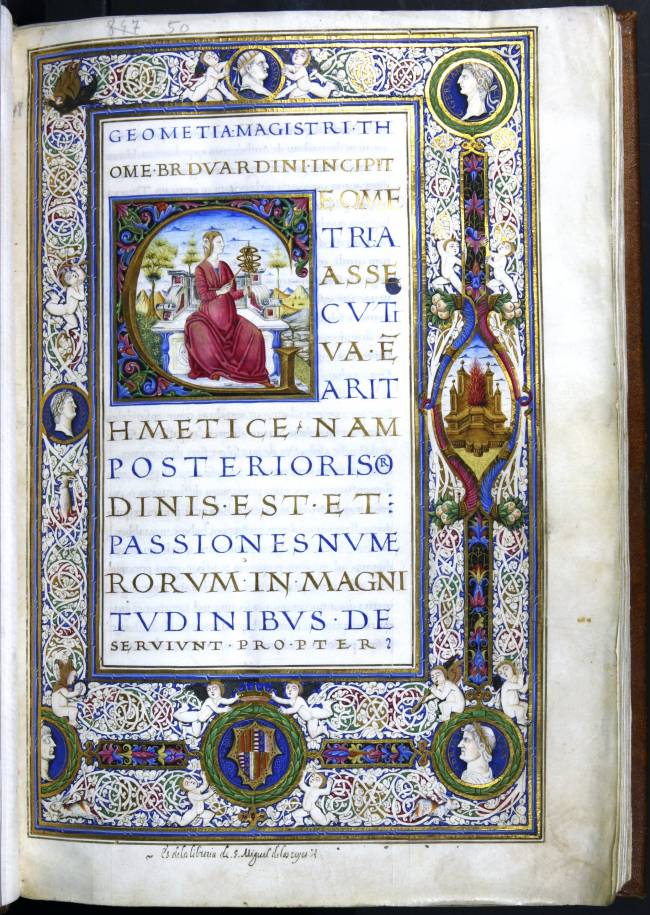 847 50
GEOMETIA·MAGISTRI·TH
OME·BRDVARDINI·INCIPIT
GEOME
TRIA
ASSE
CVTI
VA·Ē
ARIT
HMETICE NAM
POSTERIORIS OR
DINIS·EST·ET:
PASSIONES NVME
RORVM·IN·MAGNI
TVDINIBVS·DE
SERVIVNT·PRO·PTER
Es de la libreria de S. Miguel de los reyes